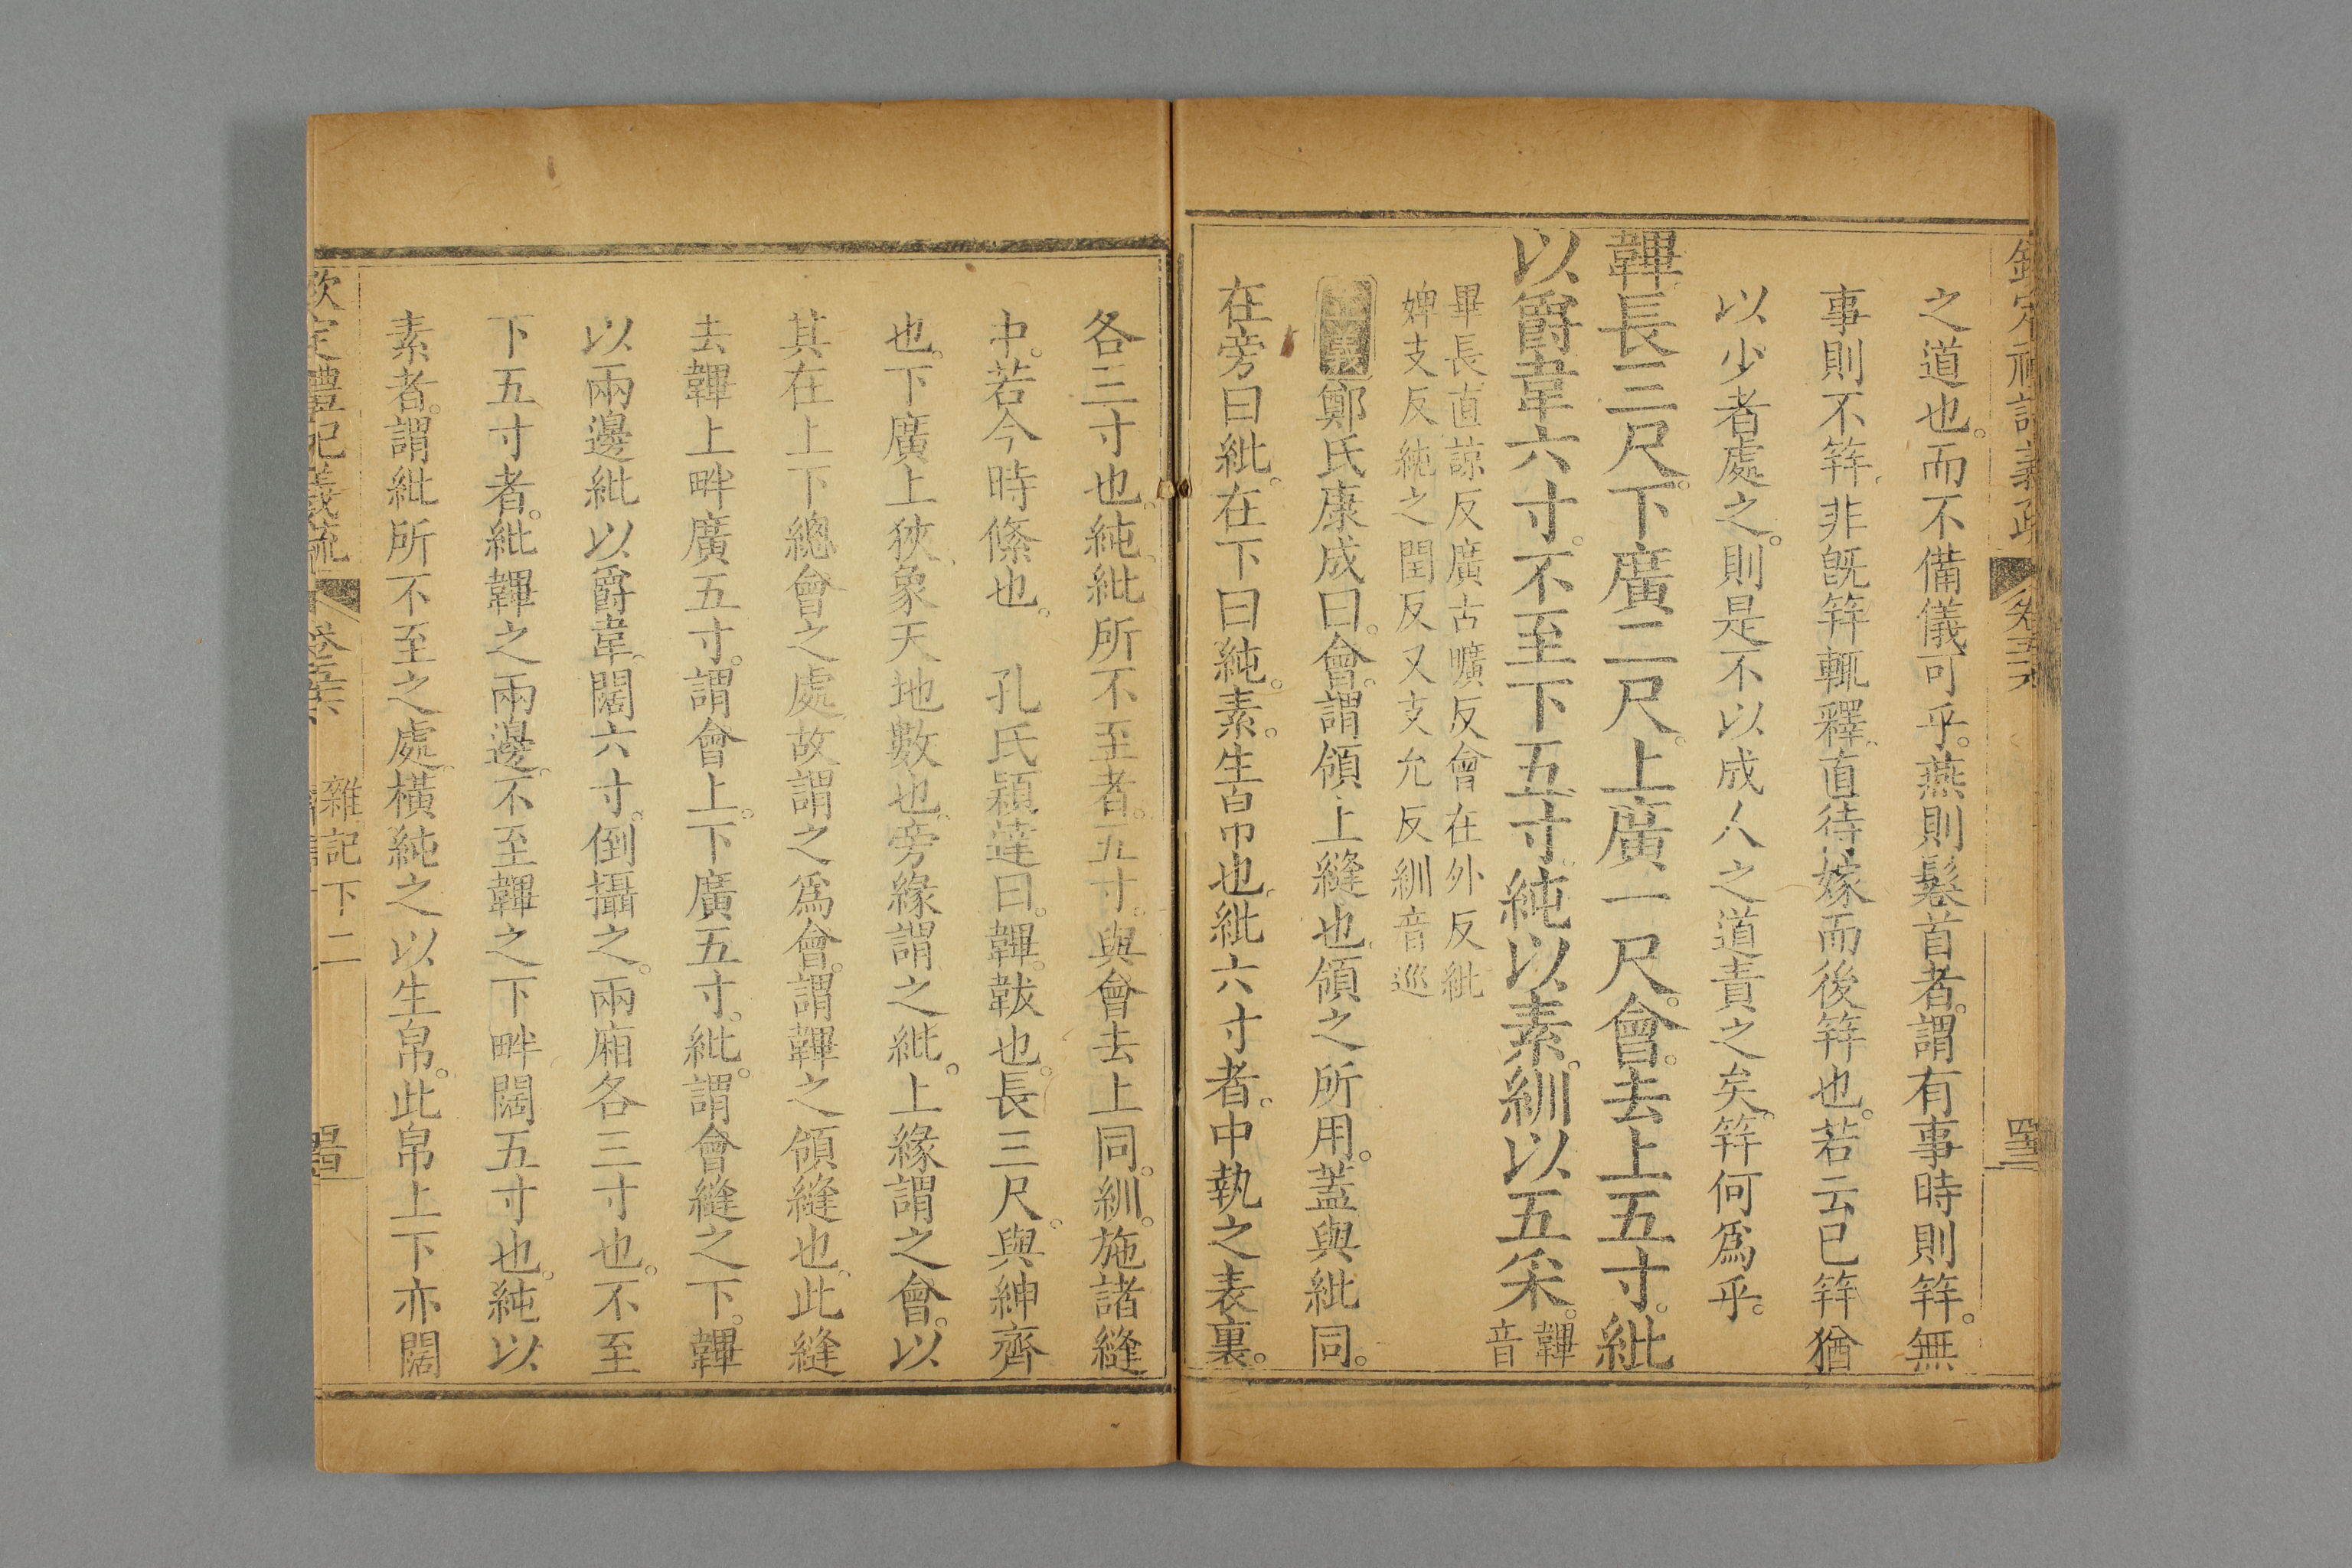 欽定禮記義疏 卷五十六
之道也。而不備儀可乎。燕則鬈首者。謂有事時則笄。無
事則不笄。非旣笄輒釋。直待嫁而後笄也。若云已笄猶
以少者處之。則是不以成人之道責之矣。笄何爲乎。
韠長三尺。下廣二尺。上廣一尺。會。去上五寸。紕
以爵韋六寸。不至下五寸。純以素。紃以五采。韠音
畢長直諒反廣古曠反會在外反紕
婢支反純之閏反又支允反紃音巡
鄭氏康成曰。會。謂領上縫也。領之所用。蓋與紕同。
在旁曰紕。在下曰純。素。生帛也。紕六寸者。中執之表裏。
各三寸也。純紕所不至者。五寸。與會去上同。紃。施諸縫
中。若今時絛也。 孔氏穎達曰。韠。韍也。長三尺。與紳齊
也。下廣上狹。象天地數也。旁緣謂之紕。上緣謂之會。以
其在上下總會之處。故謂之爲會。謂韠之領縫也。此縫
去韠上畔廣五寸。謂會上。下廣五寸。紕。謂會縫之下。韠
以兩邊紕以爵韋。闊六寸。倒攝之。兩廂各三寸也。不至
下五寸者。紕韠之兩邊。不至韠之下畔闊五寸也。純以
素者。謂紕所不至之處。橫純之以生帛。此帛上下亦闊
欽定禮記義疏 卷五十六 雜記下二